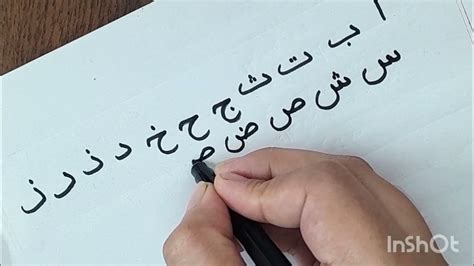 ا ب ت ث ج ح خ د ذ ر ز
س ش ص ض
InShOt